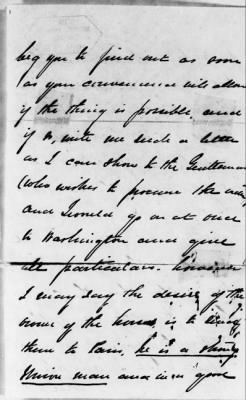 beg you to find out as soon
as your convenience will allow
if the thing is possible, and
if so, write me such a letter
as I can show to the Gentleman
(who wishes to procure the
and I would go on at once
to Washington and give
all particulars. However
I may say the desire of the
owner of the horses, is to bring
them to Paris, he is a strong
Union man and in a good